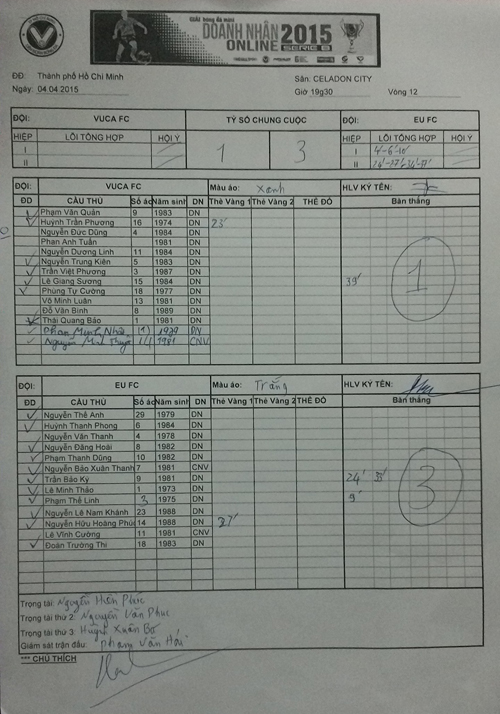 GIẢI bóng đá mini
DOANH NHÂN 2015
ONLINE SERIE B
ĐĐ: Thành phố Hồ Chí Minh Sân: CELADON CITY
Ngày: 04.04.2015 Giờ 19g30 Vòng 12
ĐỘI: VUCA FC TỶ SỐ CHUNG CUỘC ĐỘI: EU FC
HIỆP LỖI TỔNG HỢP HỘI Ý 1 3 HIỆP LỖI TỔNG HỢP HỘI Ý
I I 4'-6'-10'
II II
ĐỘI: VUCA FC Màu áo: Xanh HLV KÝ TÊN:
ĐD CẦU THỦ Số áo Năm sinh DN Thẻ Vàng 1 Thẻ Vàng 2 THẺ ĐỎ Bàn thắng
Phạm Văn Quân 9 1983 DN
Huỳnh Trần Phương 16 1974 DN 23'
Nguyễn Đức Dũng 4 1984 DN
Phan Anh Tuấn 1981 DN
Nguyễn Dương Linh 11 1984 DN
Nguyễn Trung Kiên 5 1983 DN
Trần Việt Phương 3 1987 DN
Lê Giang Sương 15 1984 DN 39'
Phùng Tự Cường 18 1977 DN
Võ Minh Luân 13 1981 DN
Đỗ Văn Bình 8 1989 DN
Thái Quang Bảo 1 1981 DN
Phan Minh 1979 DN
Nguyễn 1981 CNV
1
ĐỘI: EU FC Màu áo: Trắng HLV KÝ TÊN:
ĐD CẦU THỦ Số áo Năm sinh DN Thẻ Vàng 1 Thẻ Vàng 2 THẺ ĐỎ Bàn thắng
Nguyễn Thế Anh 29 1979 DN
Huỳnh Thanh Phong 6 1984 DN
Nguyễn Văn Thanh 4 1978 DN
Nguyễn Đăng Hoài 8 1982 DN
Phạm Thanh Dũng 10 1982 DN
Nguyễn Bảo Xuân Thanh 7 1981 CNV
Trần Bảo Ký 9 1981 DN 24'
Lê Minh Thảo 1 1973 DN
Phạm Thế Linh 3 1975 DN 9'
Nguyễn Lê Nam Khánh 23 1988 DN
Nguyễn Hữu Hoàng Phúc 14 1988 DN 37'
Lê Vĩnh Cường 11 1981 CNV
Đoàn Trường Thi 18 1983 DN
3
Trọng tài: Nguyễn Hiền Phúc
Trọng tài thứ 2: Nguyễn Văn Phúc
Trọng tài thứ 3: Huỳnh Xuân Bo
Giám sát trận đấu: Phạm Văn Hải
*** CHÚ THÍCH